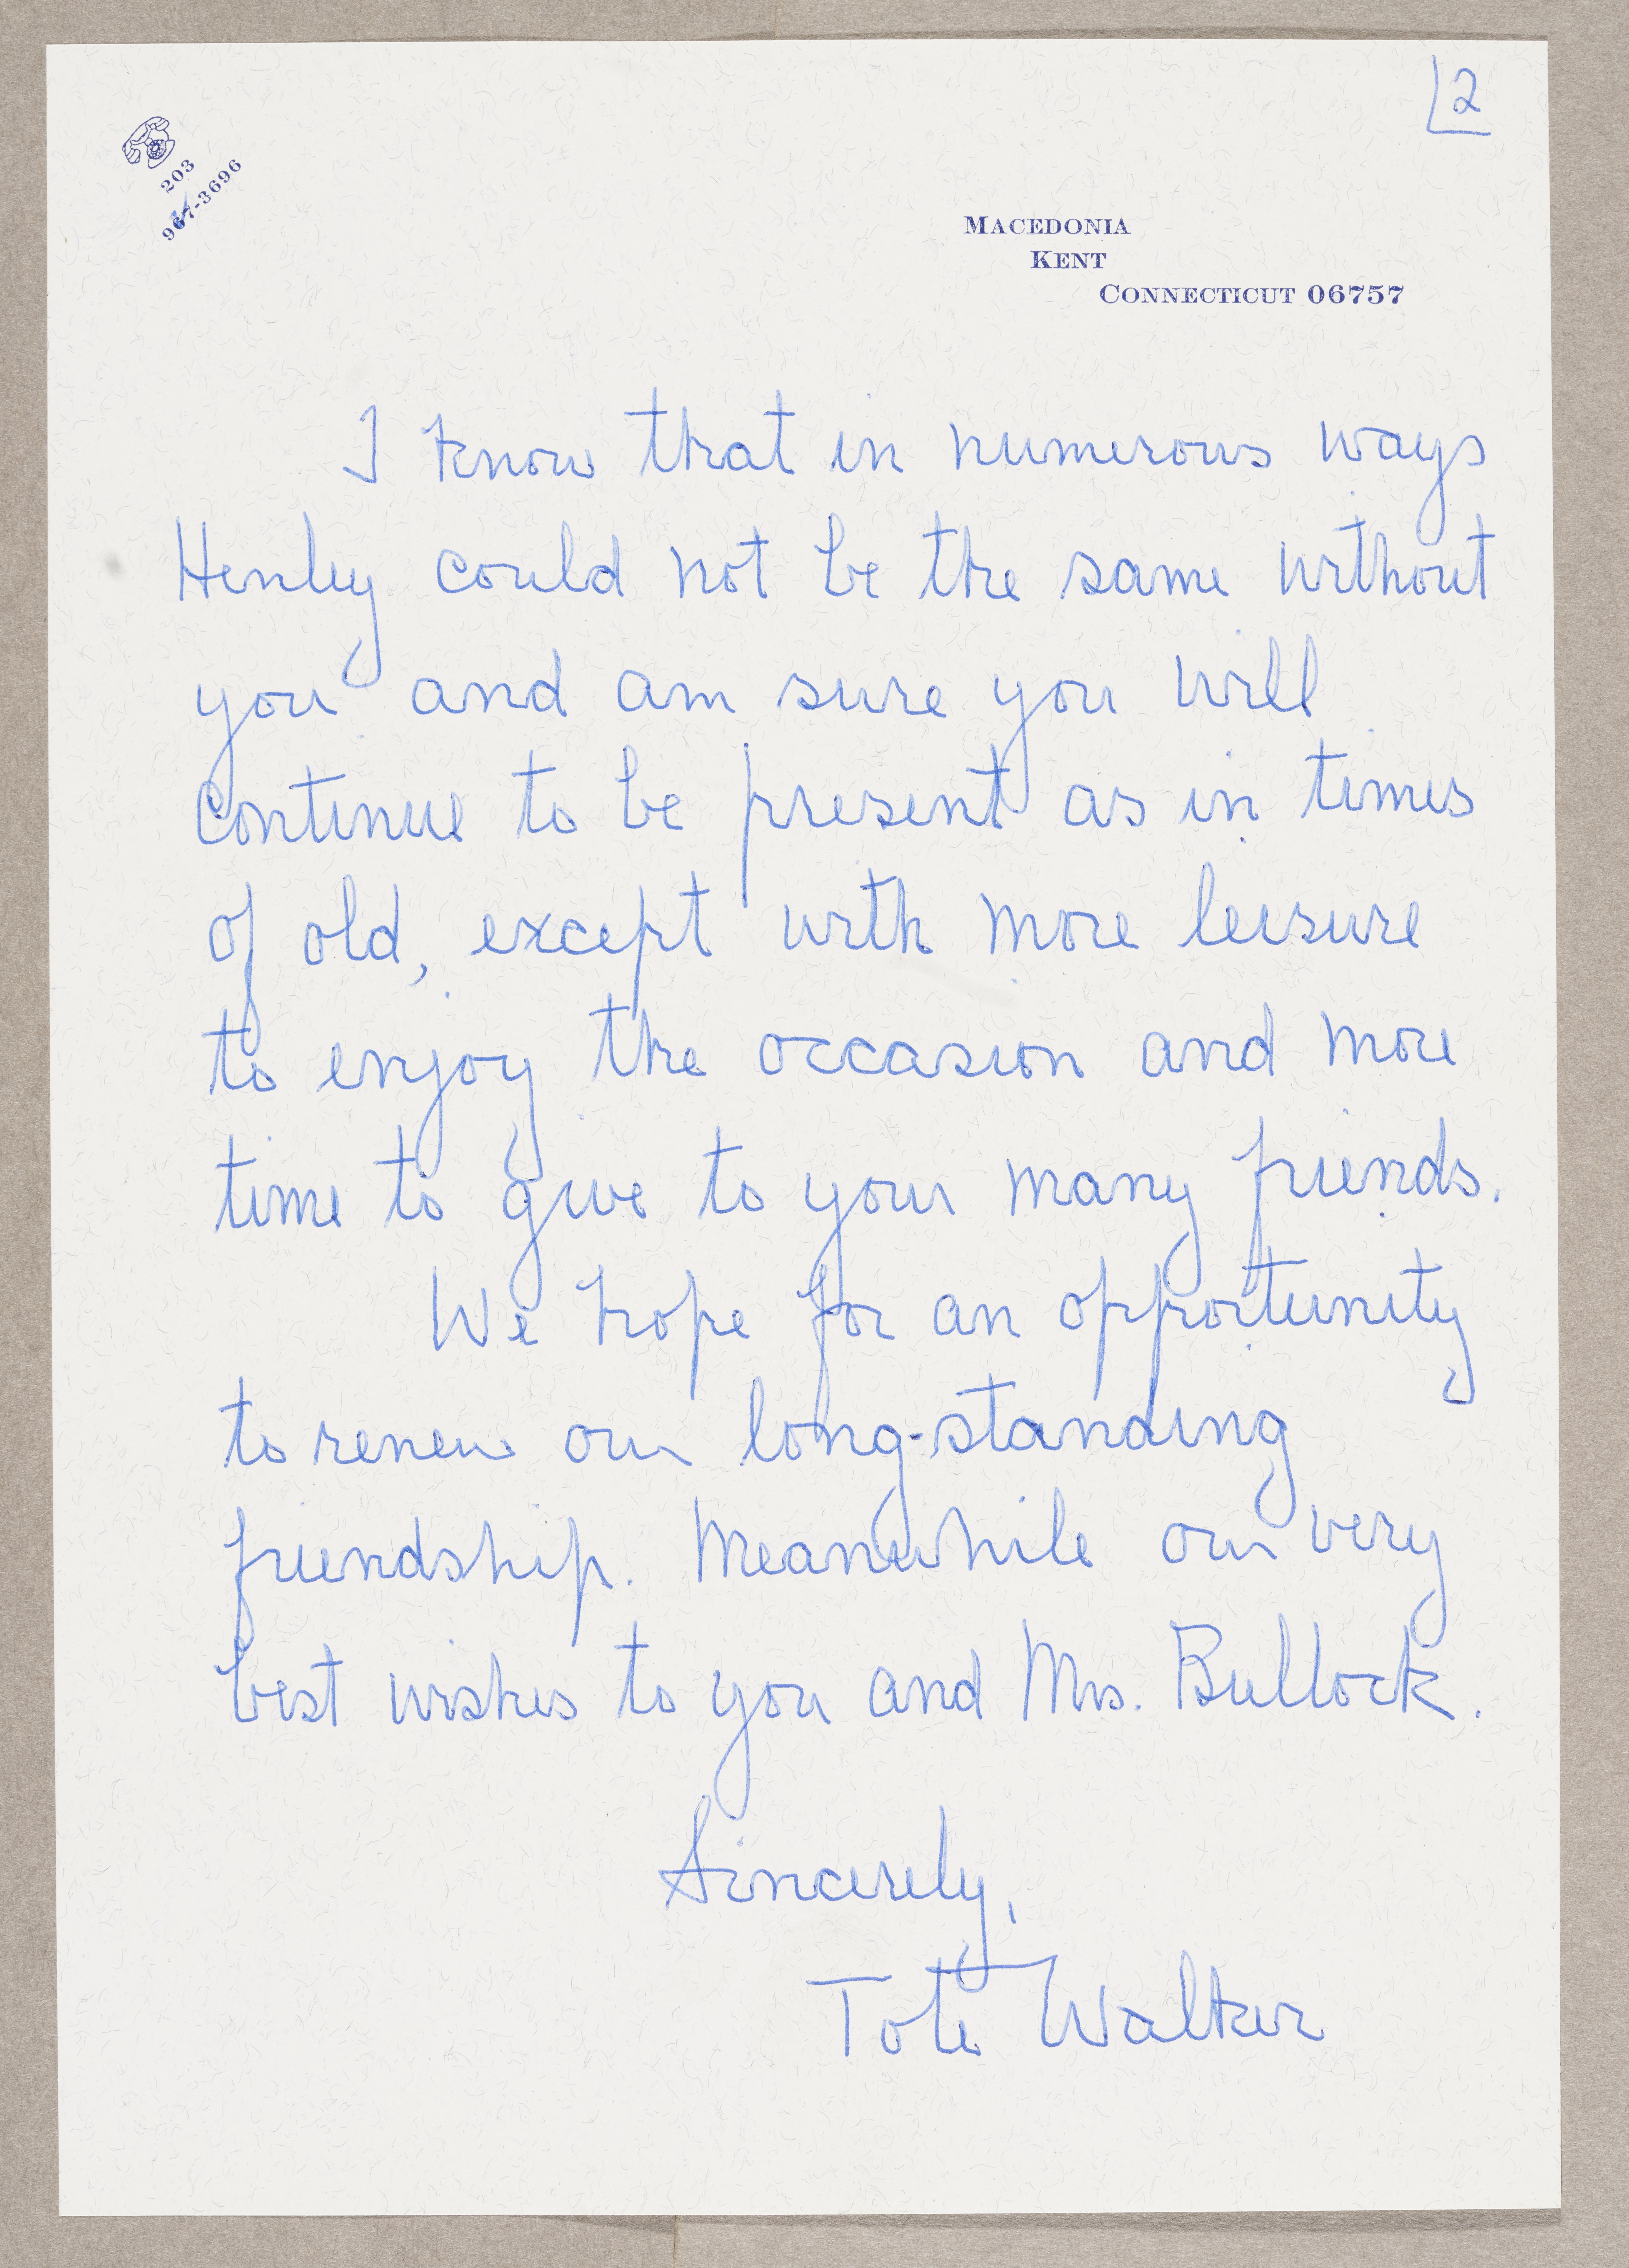 2
203
967-3696
MACEDONIA
KENT
CONNECTICUT 06757
I know that in numerous ways
Henley could not be the same without
you and am sure you will
continue to be present as in times
of old, except with more leisure
to enjoy the occasion and more
time to give to your many friends.
We hope for an opportunity
to renew our long-standing
friendship. Meanwhile our very
best wishes to you and Mrs. Bullock.
Sincerely,
Tote Walker